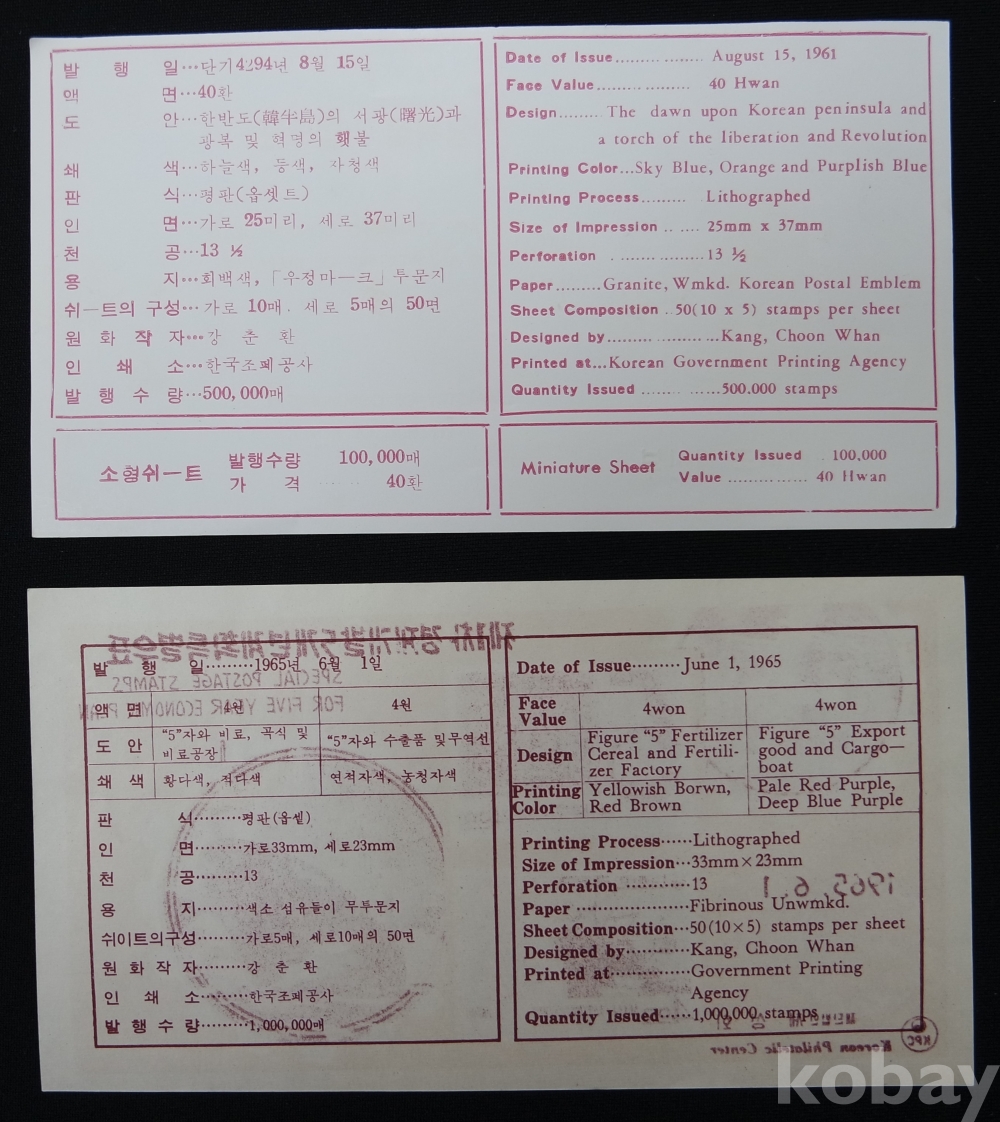 발 행 일…단기4294년 8월 15일
액 면…40환
도 안…한반도(韓半島)의 서광(曙光)과
광복 및 혁명의 횃불
쇄 색…하늘색, 등색, 자청색
판 식…평판(옵셋트)
인 면…가로 25미리, 세로 37미리
천 공…13 ½
용 지…회백색,「우정마ー크」투문지
쉬ー트의 구성…가로 10매. 세로 5매의 50면
원 화 작 자…강 춘 환
인 쇄 소…한국조폐공사
발 행 수 량…500,000매
소형쉬ー트
발행수량 100,000매
가 격 40환
Date of Issue.............. August 15, 1961
Face Value.................. 40 Hwan
Design........ The dawn upon Korean peninsula and
a torch of the liberation and Revolution
Printing Color...Sky Blue, Orange and Purplish Blue
Printing Process......... Lithographed
Size of Impression ...... 25mm x 37mm
Perforation ..........13 ½
Paper.........Granite, Wmkd. Korean Postal Emblem
Sheet Composition .50(10 x 5) stamps per sheet
Designed by......................Kang, Choon Whan
Printed at...Korean Government Printing Agency
Quantity Issued ..............500.000 stamps
Miniature Sheet
Quantity Issued . 100,000
Value ............... 40 Hwan
제1차 경제개발5개년계획특별우표
SPECIAL POSTAGE STAMPS
FOR FIVE YEAR ECONOMY PLAN
발 행 일………1965년 6월 1일
액 면 4원 4원
도 안 “5”자와 비료, 곡식 및 비료공장 “5”자와 수출품 및무역선
쇄 색 황다색, 적다색 연적자색, 농청자색
판 식………평판(옵셑)
인 면………가로33mm, 세로23mm
천 공………13
용 지………색소 섬유들이 무투문지
쉬이트의구성………가로5매, 세로10매의 50면
원 화 작 자………강 춘 환
인 쇄 소………한국조폐공사
발 행 수 량………1,000,000매
Date of Issue………June 1, 1965
Face Value 4won 4won
Design Figure “5” Fertilizer Cereal and Fertili-zer Factory Figure “5” Export good and Cargo—boat
Printing Color Yellowish Borwn, Red Brown Pale Red Purple, Deep Blue Purple
Printing Process……Lithographed
Size of Impression…33mm×23mm
Perforation …………13
1965. 6. 1
Paper …………………Fibrinous Unwmkd.
Sheet Composition…50(10×5) stamps per sheet
Designed by…………Kang, Choon Whan
Printed at……………Government Printing
Agency
Quantity Issued……1,000,000 stamps
KPC
Korean Philatelic Center
kobay